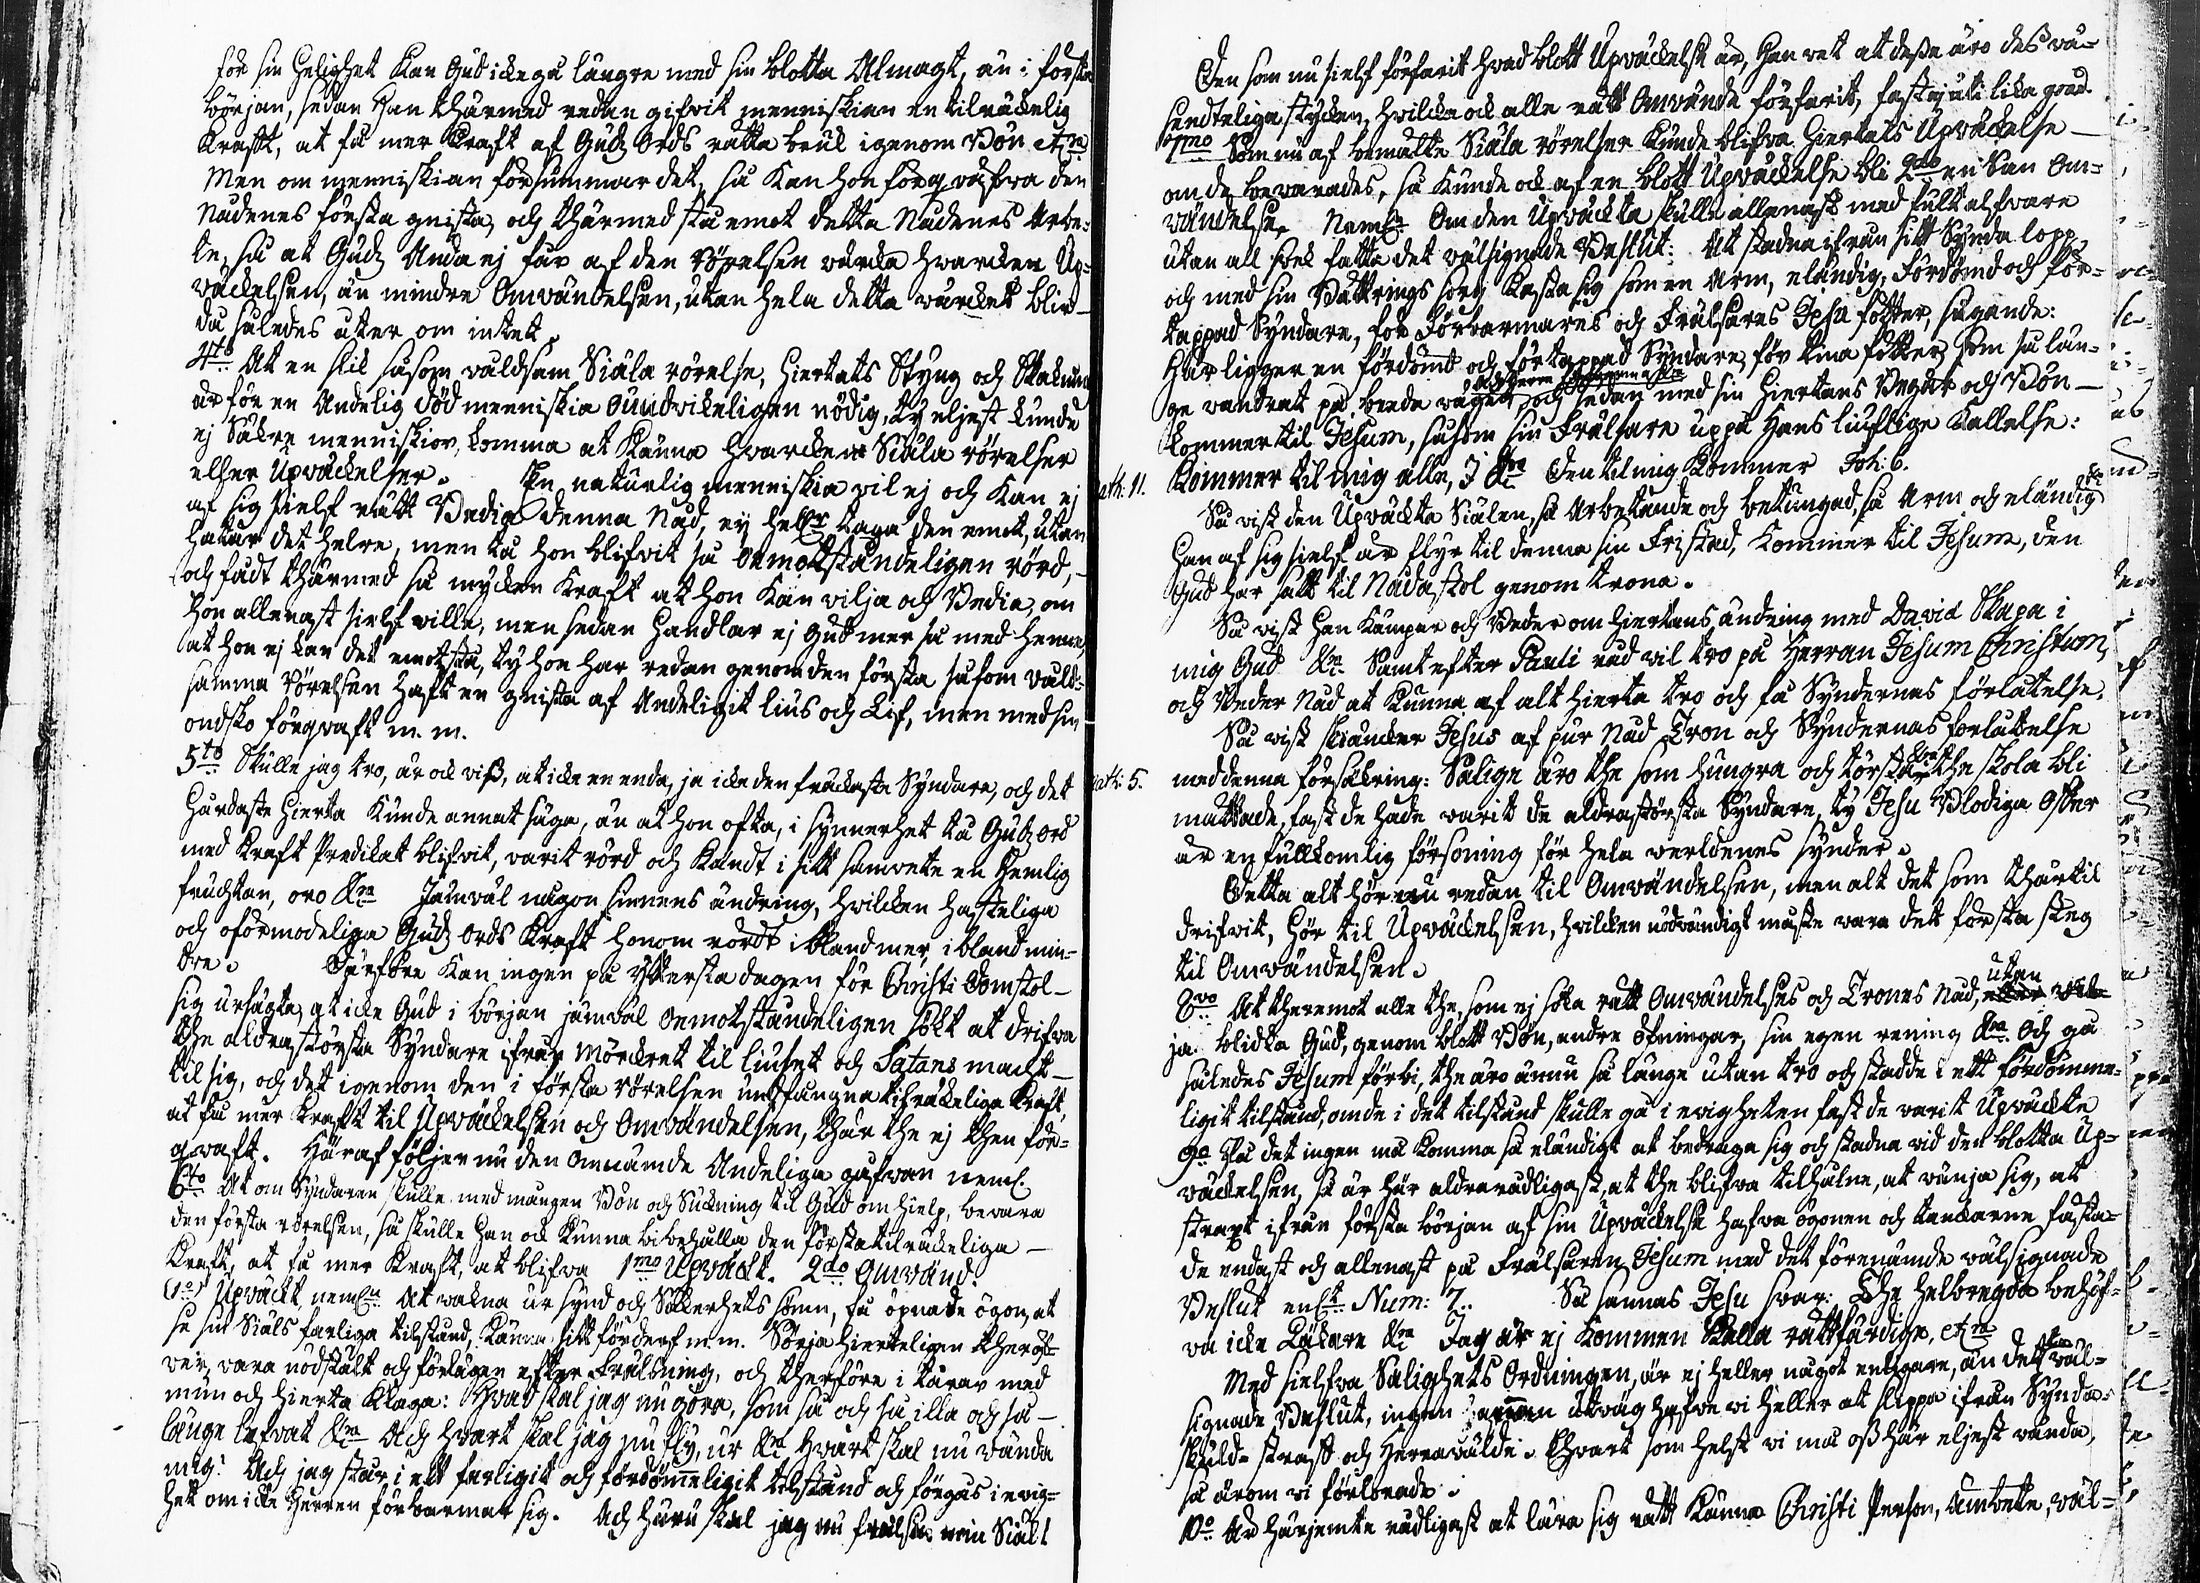 för sin Helighet kan Gud icke gå längre med sin blotta Almagt, än i första
början, sedan Han thärmed redan gifvit menniskian en tilräckelig
kraft, at få mer Kraft af Gudz Ords rätta bruk igenom Bön etc
Men om menniskian försummar det, så kan hon förqväfva den
Nådenes första gnista, och thärmed stå emot detta Nådenes Arbe-
te, så at Gudz Anda ej får af den rörelsen wärcka hwarcken Up-
väckelsen, än mindre Omvändelsen, utan hela detta wärcket blir
då således åter om intet.
4to At en slik såsom våldsam Siäla rörelse, Hiertats Styng och
är för en Andelig död menniskia Oundvickeligen nödig, ty eljest kunde
ej Säkre menniskior, komma at känna hvarcken Siäla rörelser
eller Upväckelser. En naturlig menniskia vil ej och kan ej
af sig sielf rätt Bedia denna Nåd, ej heller taga den emot, utan
hatar det helre, men tå hon blifvit så Oemotståndeligen rörd,
och fådt thärmed så mycken Kraft at hon kan vilja och Bedia, om
hon allenast sielf ville, men sedan handlar ej Gud mer så med henne,
at hon ej kan det emotstå, ty hon har redan genom den första såsom våld-
samma rörelsen haft en gnista af Andeligit lius och Lif, men med sin
ondsko förqvaft m. m.
5to Skulle jag tro, är ock viß, at icke en enda, ja icke den fräckaste Syndare, och det
Hårdaste Hierta kunde annat säga, än at hon ofta, i synnerhet tå Gudz ord
med Kraft Predikat blifvit, varit rörd och kändt i sitt samvete en hemlig
fruchtan, oro &c Jämväl någon sinnens ändring, hvilcken hasteliga
och oförmodeliga Gudz Ords Kraft honom rördt ibland mer, ibland min-
dre. Därföre kan ingen på ytterstadagen för Christi Domstol
sig ursägta, at icke Gud i början jämväl Oemotståndeligen sökt at drifva
the aldrastörsta Syndare ifrån Mörckret til liuset och Satans macht
til sig, och det igenom den i första rörelsen undfångna tilräckeliga Kraft,
at få mer Kraft til Upväckelsen och Omvändelsen, thär the ej then för-
qvaft. Häraf följer nu den Omnämde Andeliga gåfvan neml.
6to At om Syndaren skulle med mången Bön och Suckning til Gud om hielp, bevara
den första rörelsen, så skulle Han ock kunna bibehålla den första tilräckeliga
Kraft, at få mer Kraft, at blifva 1mo Upväckt. 2do Omvänd.
(1o) Upväckt, neml. At wakna ur synd och Säkerhets sömn, få öpnade ögon, at
se sin Siäls farliga tilstånd, känna sitt förderf m.m. Sörja hierteligen theröf-
ver, vara nödstält och förlägen efter frälsning, och therföre i tårar med
mun och hierta klaga: Hvad skal jag nu göra, som så och så illa och så
länge lefvat &c Ach hvart skal jag nu fly, ur &c hvart skal nu vända
mig! Ach jag står i ett farligit och fördömmeligit tilstånd och förgås i ewig-
het om icke Herren förbarmar sig. Ach huru skal jag nu frälsa min Siäl!

Den som nu sielf förfarit hvad blott Upväckelse är, Han vet at deße äro des vä-
sendteliga stycken, hvilcka ock alle rätt Omvände förfarit, fast ej uti lika grad.
7mo Som nu af bemälte Siäla rörelser kunde blifva Hiertats Upväckelse
om de bevarades, så kunde ock af en blott Upväckelse bli 2do en San Om-
vändelse. Neml. Om den Upväckta skulle allenast med fult alfvare
utan all svek fatta det välsignade Beslut: At stadna ifrån sitt Synda lopp,
och med sin Bättrings sorg kasta sig som en Arm, eländig, Fördömd och för-
tappad Syndare, för Förbarmares och Frälsares Jesu fötter, sägande:
Här ligger en fördömd och förtappad Syndare för tina fötter, som så län-
ge vandrat på breda vägen, och sedan med sin Hiertans Begär och Bön
kommer til Jesum, såsom sin Frälsare uppå Hans liuflige Kallelse:
ath: 11. Kommer til mig alle, I &c Den til mig kommer Joh: 6.
Så vißt den Upväckta Siälen, så Arbetande och betungad, så Arm och eländig
Han af sig sielf är flyr til denna sin Fristad, kommer til Jesum, den
Gud har satt til Nådastol genom trona.
Så vißt Han kämpar och Beder om hiertans ändring med David Skapa i
mig Gud &c Samt efter Pauli råd vil tro på Herran Jesum Christum,
och Beder Nåd at kunna af alt hierta tro och få Syndernes förlåtelse.
Så vißt skiäncker Jesus af pur Nåd Tron och Syndernas förlåtelse
ath: 5. med denna försäkring: Salige äro the som hungra och törsta the skola bli
mättade, fast de hade varit de aldrastörsta Syndare, ty Jesu Blodiga Offer
är en fullkomlig försoning för hela werldenes synder.
Detta alt hör nu redan til Omvändelsen, men alt det som thärtil
drifvit, hör til Upväckelsen, hvilcken nödvändigt måste vara det första steg
til Omvändelsen.
8vo At theremot alle the, som ej söka rätt Omvändelses och Trones Nåd, utan
ja blidka Gud, genom blott Bön, andre öfningar, sin egen rening &c. Och gå
således Jesum förbi, the äro ännu så länge utan tro och stadde i ett fördömme-
ligit tilstånd, om de i det tilstånd skulle gå i evigheten fast de varit Upväckte
9o På det ingen må komma så eländigt at bedraga sig och stadna vid den blotta Up-
väckelsen, så är här aldrarådligast, at the blifva tilhålne, at vänja sig, at
straxt ifrån första början af sin Upväckelse hafva ögonen och tanckarne fästa-
de endast och allenast på Frälsaren Jesum med det förenämde välsignade
Beslut enl. Num: 7. Så sannas Jesu svar: The helbregda behöf-
va icke Läkare &c Jag är ej kommen kalla rättfärdige, etc
Med sielfva Salighets Ordningen, är ej heller något enligare, än dett väl-
signade Beslut, ingen annan utväg hafve vi heller at slippa ifrån Synda-
skuld- straff och Herravälde. Ehvart som helst vi må oß här eljest vända,
så ärom vi förlorade.
10o Är härjemte rådligast at lära sig rätt känna Christi Person, Ämbete, väl-